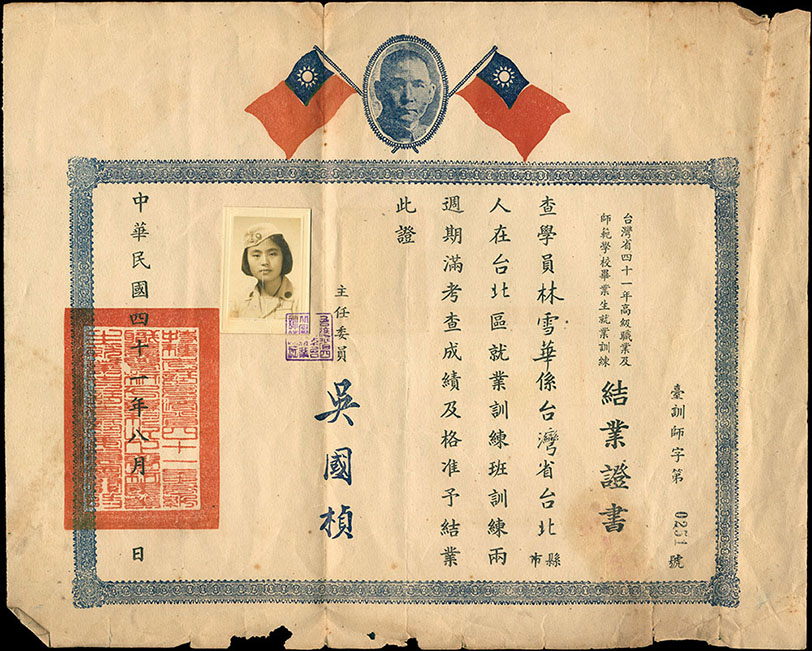 臺訓師字第0251號
台灣省四十一年高級職業及
師範學校畢業生就業訓練
結業證書
查學員林雪華係台灣省台北縣市
人在台北區就業訓練班訓練兩
週期滿考查成績及格准予結業
此證
主任委員
吳國楨
中華民國四十一年八月 日